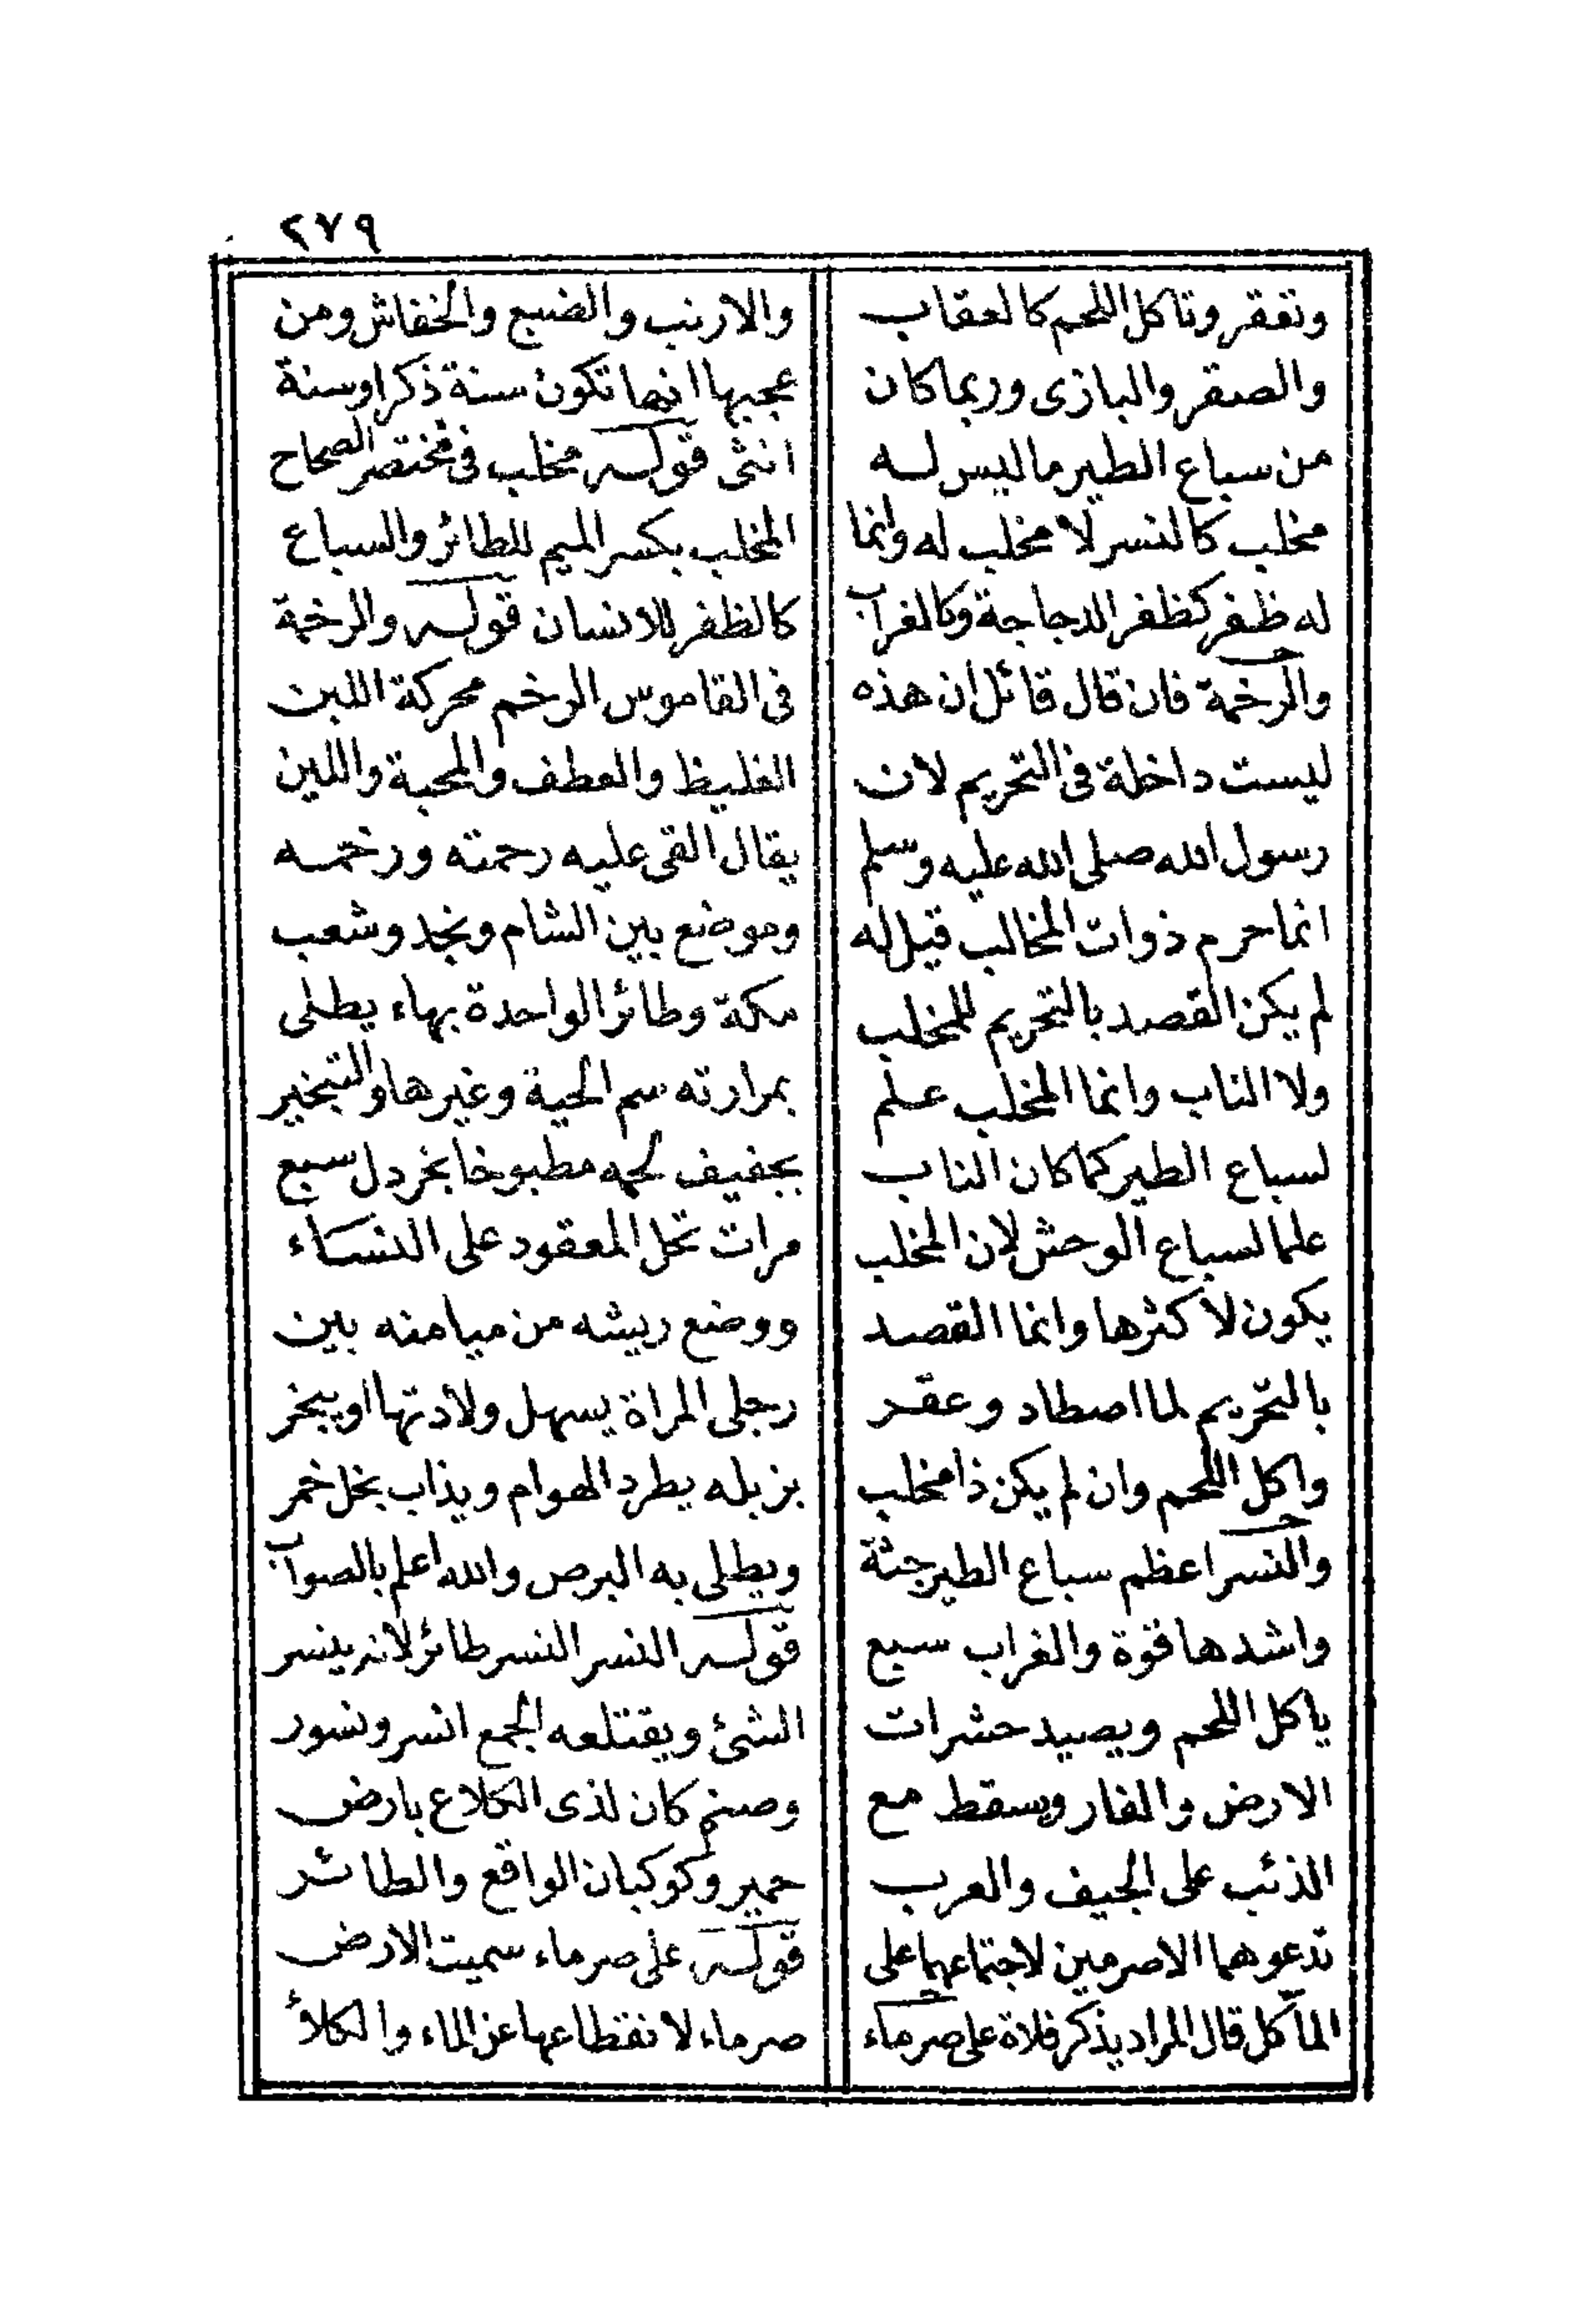 ٢٧٩
وتعقر وتاكل اللحم كالعقاب
والصقر والبازى وربما كان
من سباع الطير ما ليس له
مخلب كالنسر لا مخلب له وانما
له ظفر كظفر الدجاجة وكالغراب
والرخمة فان قال قائل ان هذه
ليست داخلة فى التحريم لان
رسول الله صلى الله عليه وسلم
انما حرم ذوات المخالب قيل له
لم يكن القصد بالتحريم للمخلب
ولا الناب وانما المخلب علم
لسباع الطير كما كان الناب
علما لسباع الوحش لان المخلب
يكون لاكثرها وانما القصد
بالتحريم لما اصطاد وعقر
واكل اللحم وان لم يكن ذا مخلب
والنسر اعظم سباع الطير جثة
واشدها قوة والغراب سبع
ياكل اللحم ويصيد حشرات
الارض والفار ويسقط مع
الذئب على الجيف والعرب
تدعوهما الاصرمين لاجتماعهما على
المآكل قال المراد يذكر فلاة على صرماء
والارنب والضبع والخفاش ومن
عجبها انها تكون سنة ذكرا وسنة
انثى قوله مخلب فى مختصر الصحاح
المخلب بكسر الميم للطائر والسباع
كالظفر للانسان قوله والرخمة
فى القاموس الرخم محركة اللبن
الغليظ والعطف والمحبة واللين
يقال القى عليه رحمته ورخمه
وموضع بين الشام ونجد وشعب
مكة وطائر الواحدة بهاء يطلى
بمرارته سم الحية وغيرها والتبخير
بجفيف لحمه مطبوخا بخردل سبع
مرات تحل المعقود على النساء
ووضع ريشه من ميامنه بين
رجلى المراة يسهل ولادتها او يبخر
بزبله يطرد الهوام ويذاب بخل خمر
ويطلى به البرص والله اعلم بالصواب
قوله النسر النسر طائر لانه ينسر
الشئ ويقتلعه الجمع انسر ونسور
وصنم كان لذى الكلاع بارض
حمير وكوكبان الواقع والطائر
قوله على صرماء سميت الارض
صرماء لانقطاعها عن الماء والكلأ